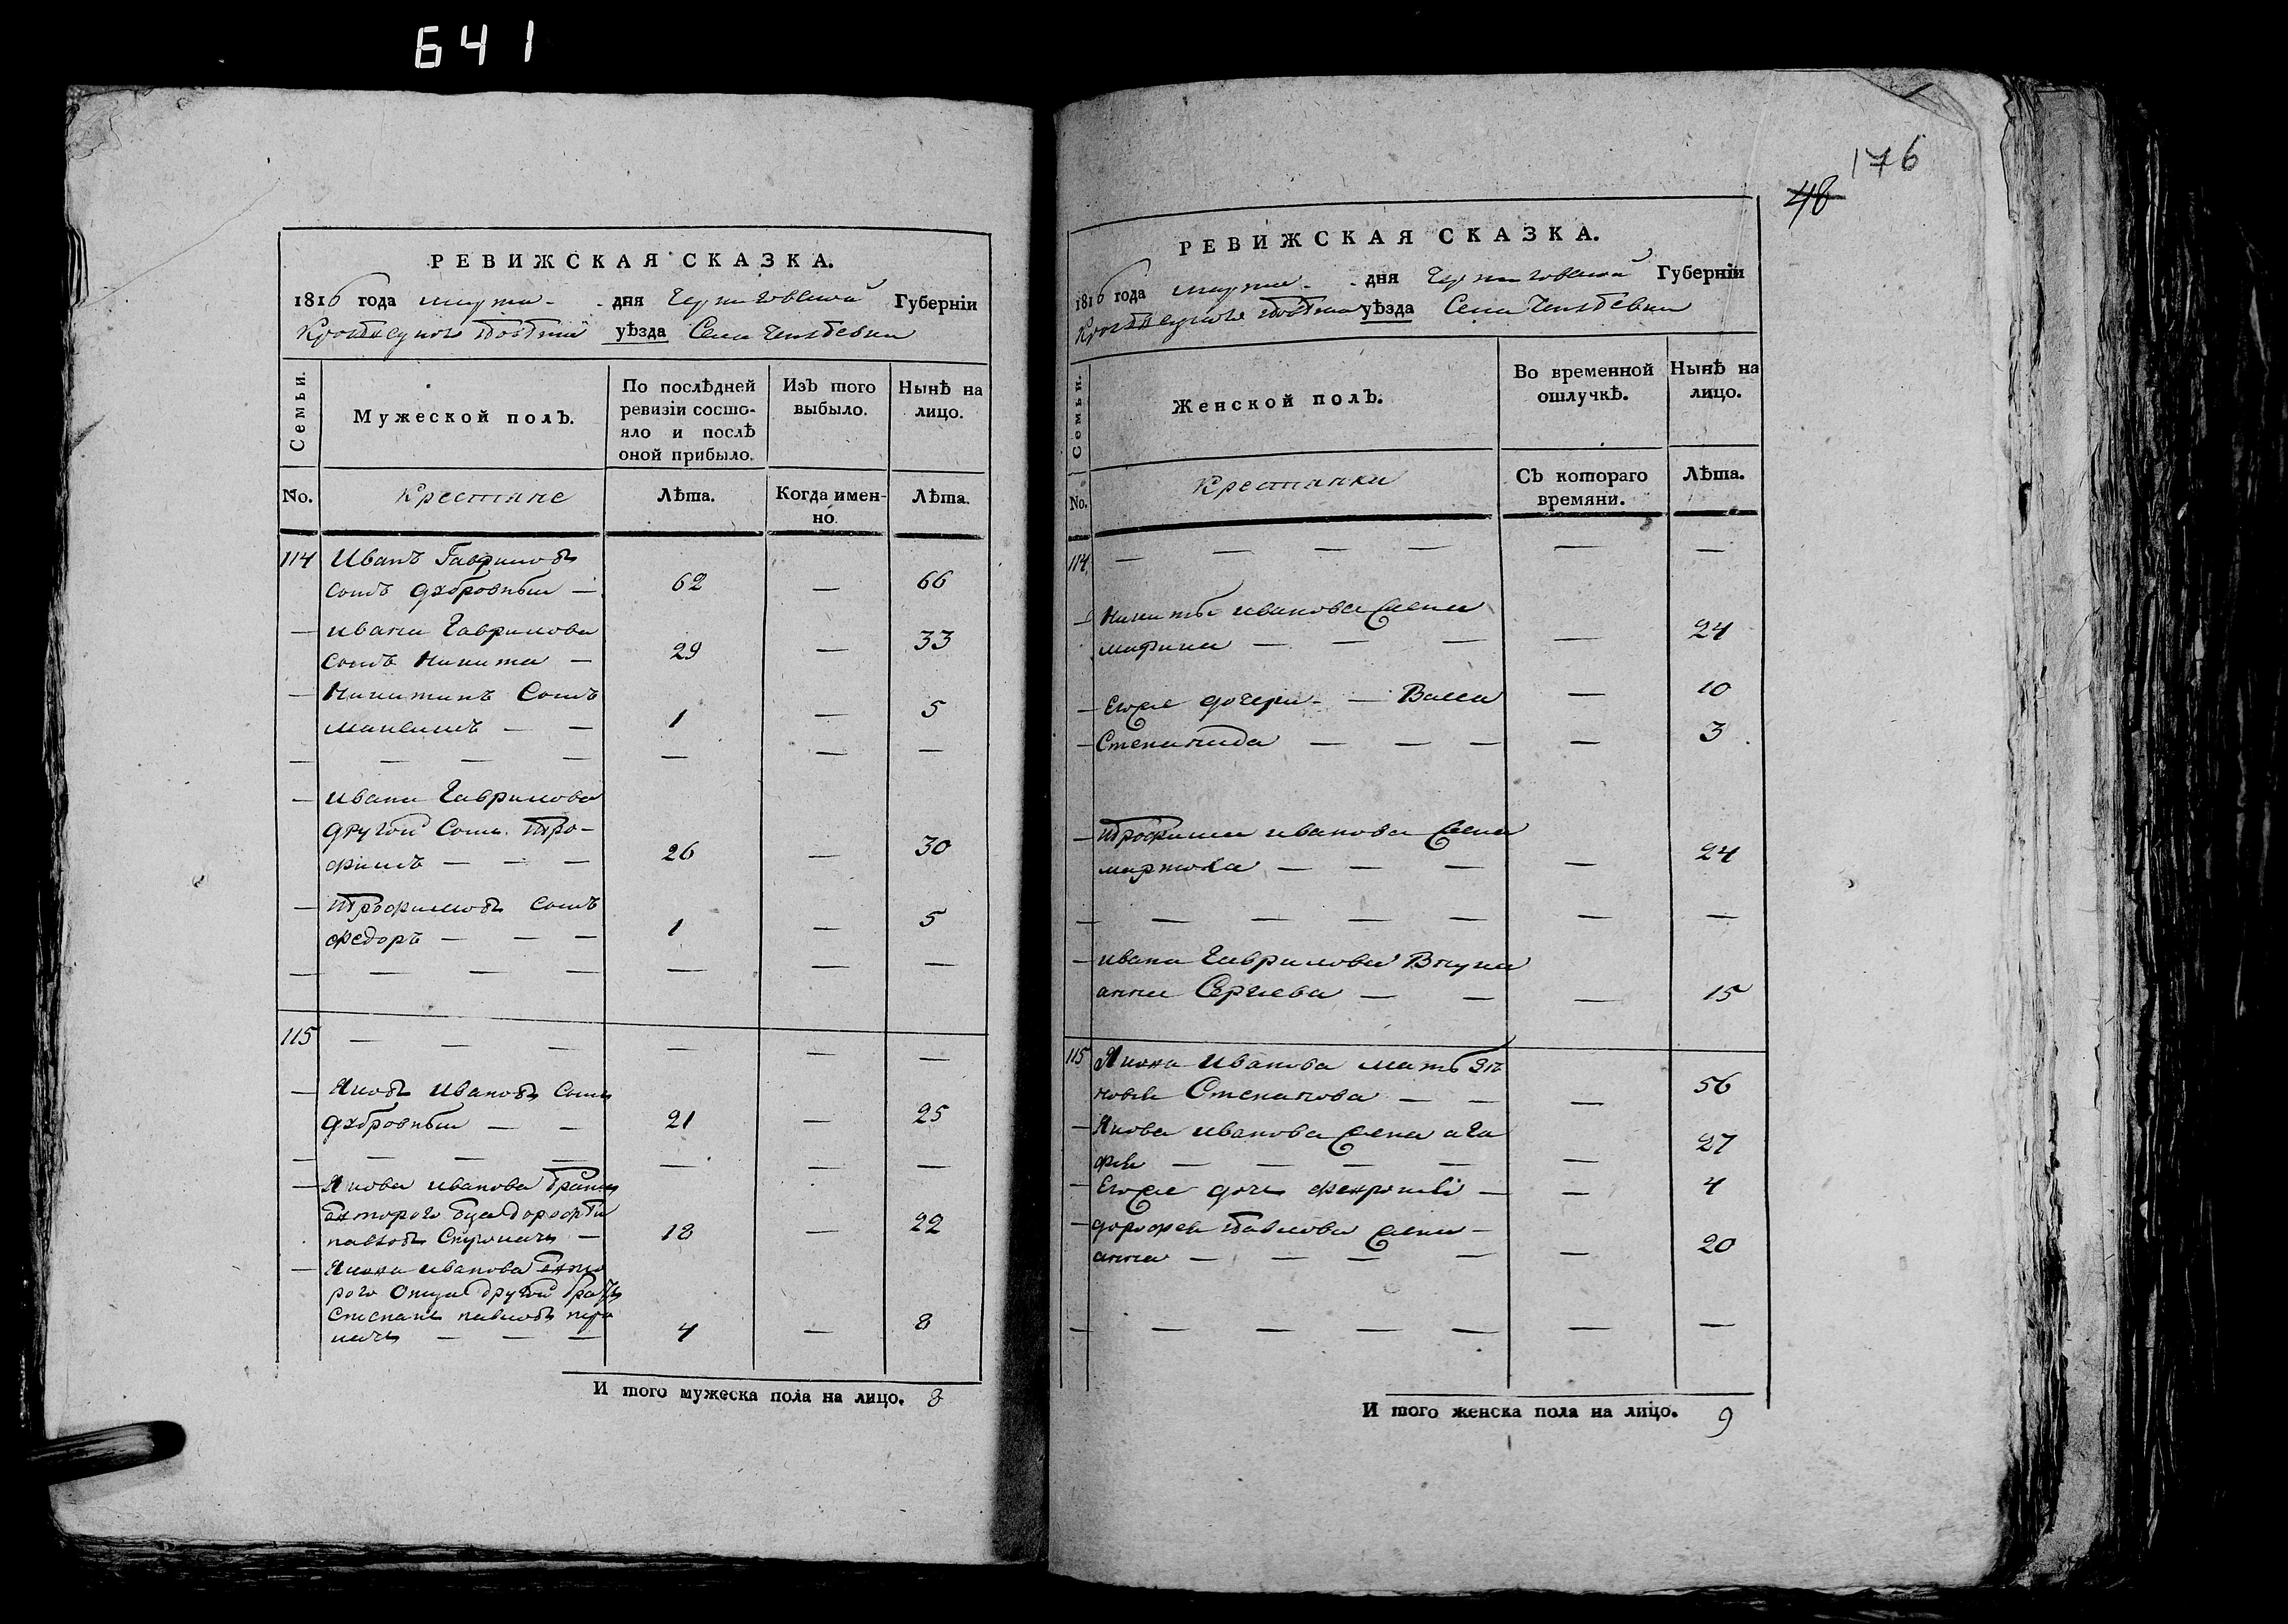 641
РЕВИЖСКАЯ СКАЗКА.
1816 года марта - дня Черниговской Губерніи
уѣзда Села
Семьи.
Мужеской полъ.
По послѣдней ревизіи состо-
яло и послѣ
оной прибыло.
Изъ того выбыло.
Нынѣ на лицо.
No.
Крестяне
Лѣта.
Когда имен-
но.
Лѣта.
114 Иванъ Гавриловъ
сынъ — 62 — 66
— Ивана Гаврилова
сынъ Никита — 29 — 33
— Никитинъ Сынъ
— — 1 — 5
— — — — — — —
— Ивана Гаврилова
другой Сынъ Тро-
фимъ — — — 26 — 30
— Трофимовъ сынъ
Федоръ — — — 1 — 5
— — — — — — —
115 — — — — — —
— Яковъ Ивановъ Сынъ
— — 21 — 25
— — — — — — —
— Якова Иванова братъ
второго отца дорофей
павловъ — 18 — 22
— Якова Иванова вто
рого Отца другой братъ
Степанъ павловъ
— — — 4 — 8
И того мужеска пола на лицо. 8
176
48
РЕВИЖСКАЯ СКАЗКА.
1816 года марта - дня Черниговской Губерніи
уѣзда Села
Семьи.
Женской полъ.
Во временной
отлучкѣ.
Нынѣ на
лицо.
No.
Крестянки
Съ котораго
времяни.
Лѣта.
114 — — — — — —
— Никиты Иванова жена
марина — — — — 24
— Егоже дочери — Васса — 10
— Степанида — — — — 3
— Трофима Иванова жена
марфа — — — — 24
— — — — — — —
— Ивана Гаврилова Внука
анна Сергеева — — — 15
115 Якова Иванова мать Зи
новья Степанова — — — 56
— Якова Иванова жена ага
фья — — — — — 27
— Егоже дочь — — 4
— дорофея Павлова жена —
анна — — — — 20
— — — — — — —
И того женска пола на лицо. 9